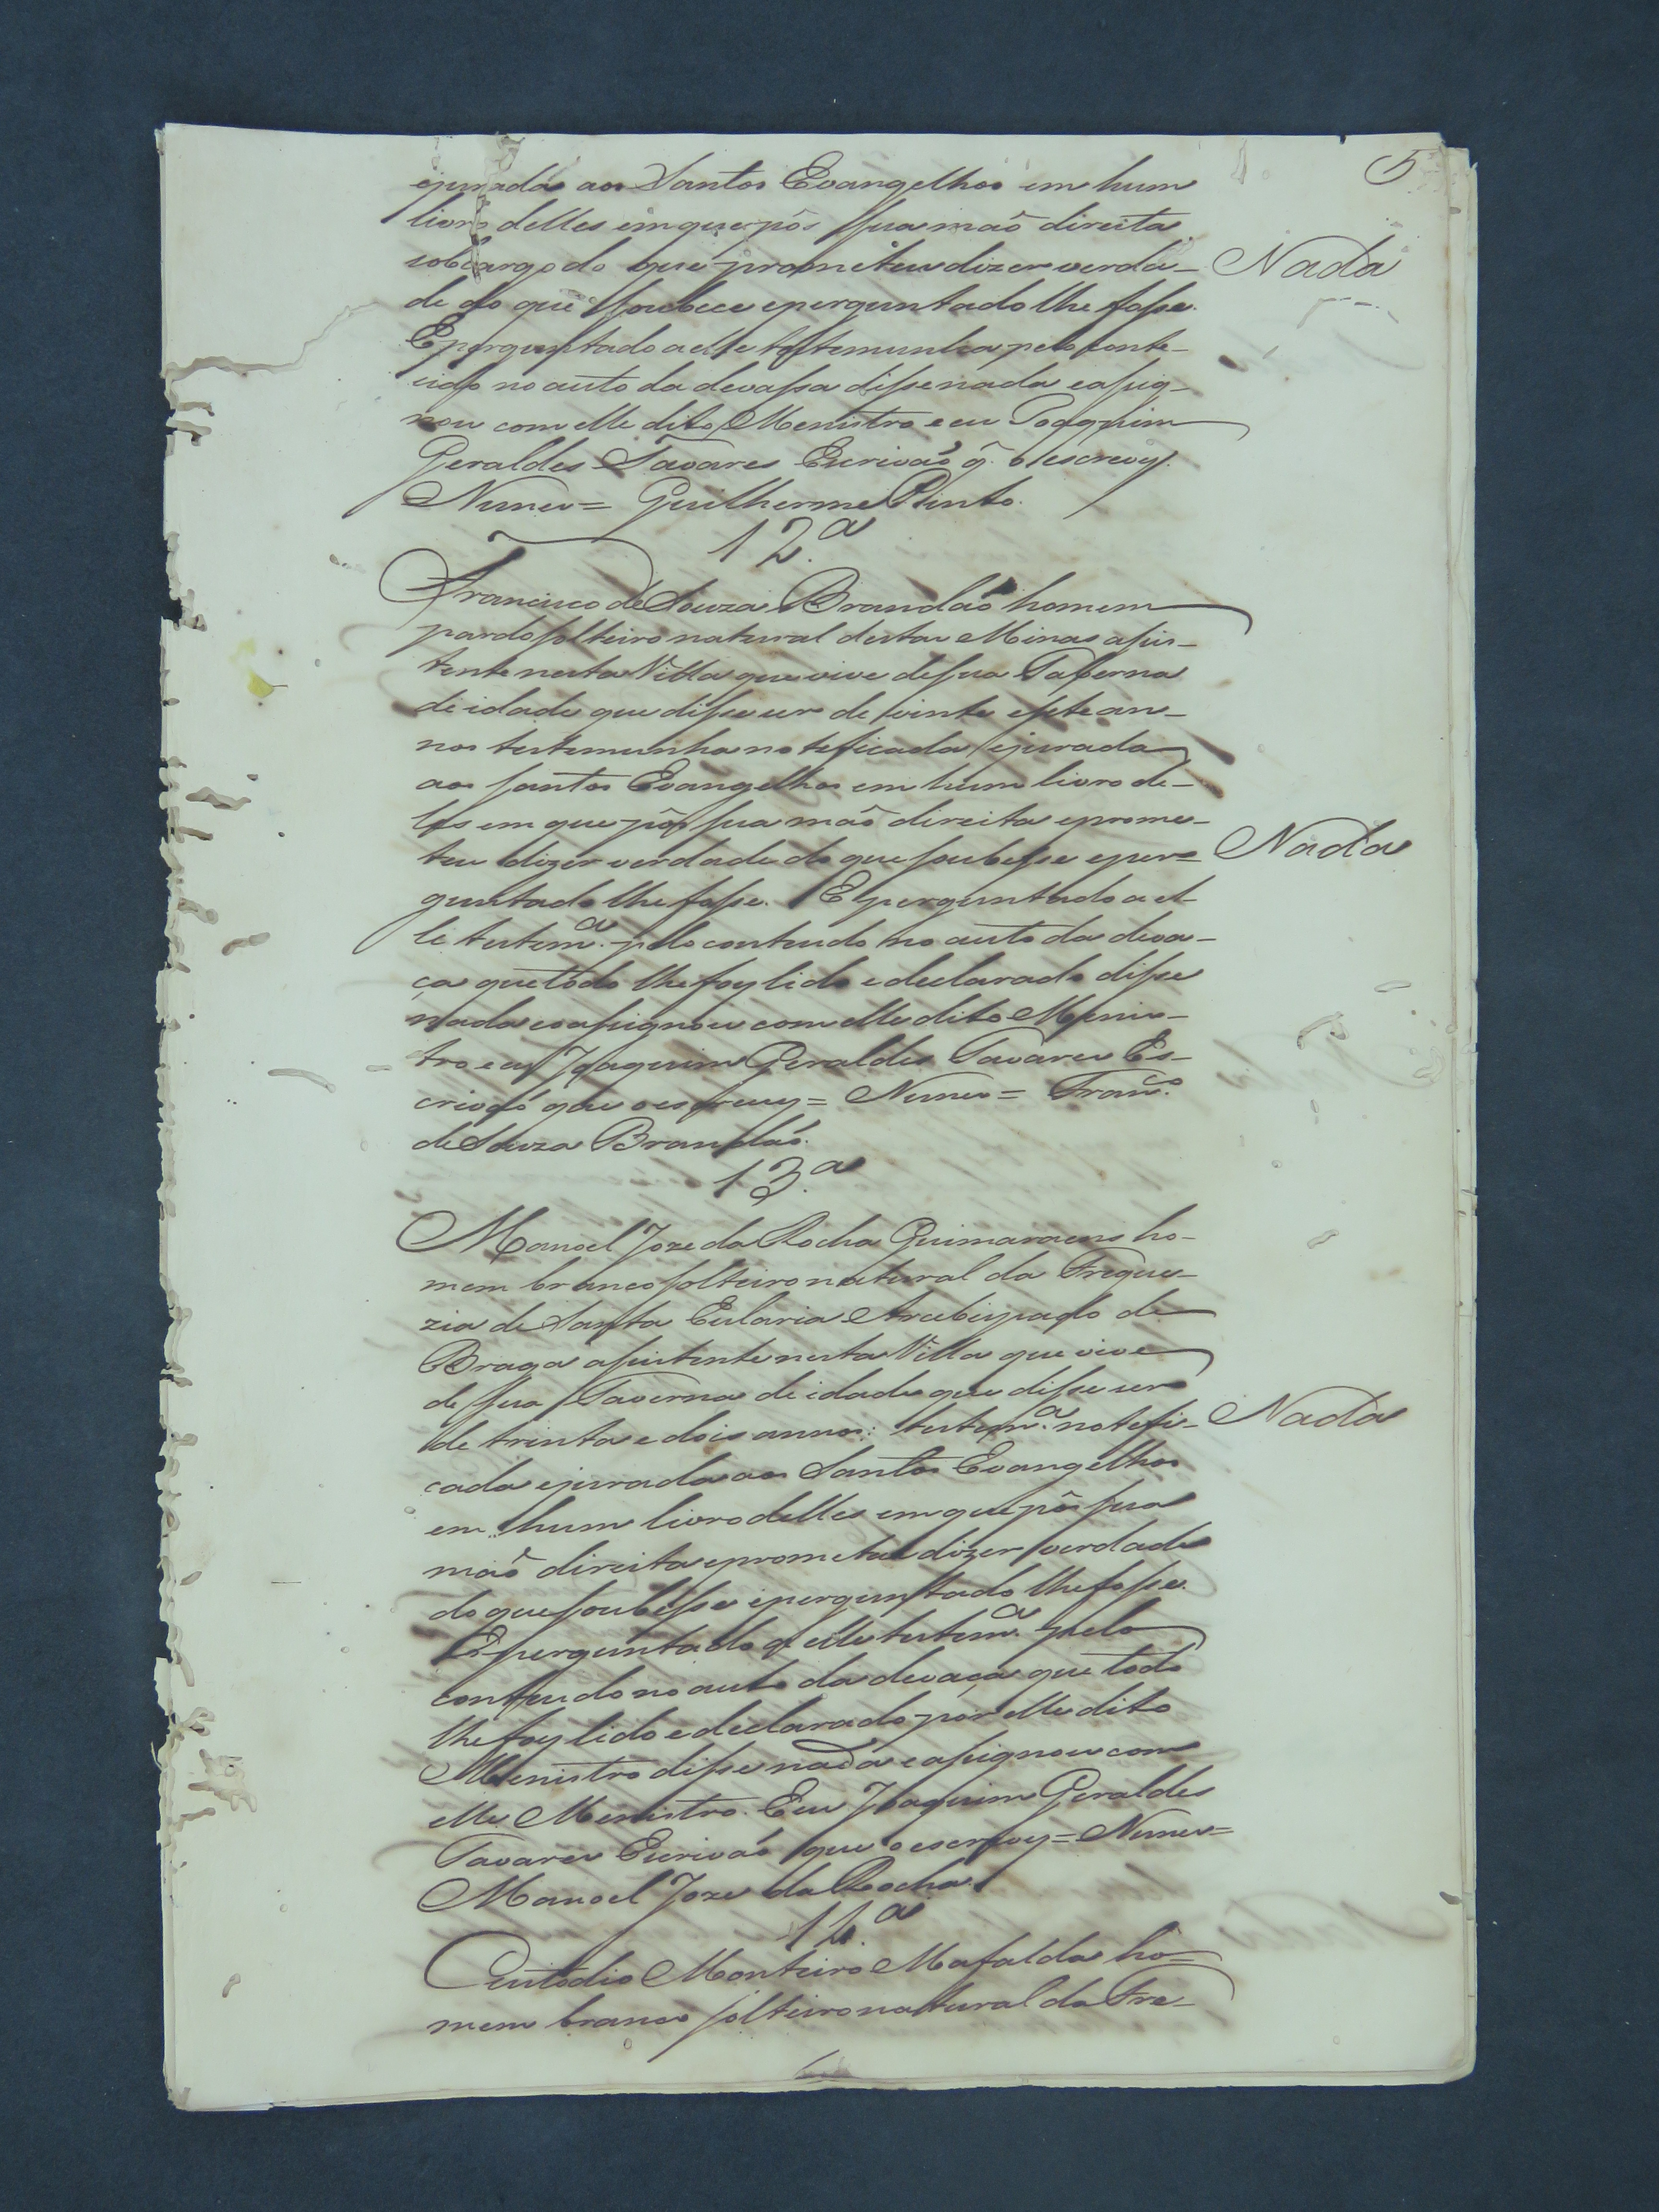 5
ejurada aos Santos Evangelhos em hum
livro delles em que pôs sua maõ direita
sobcargo do que prometeu dizer verda-
Nada
de do que soubece eperguntado lhe fosse.
Eperguntado a elle testemunha pelo conte-
udo no auto da devassa disse nada easig-
nou com elle dito Menistro e eu Joaquim
Geraldes Tavares Escrivaõ q̃ o escrevy.
Nunes = Guilherme Pinto.
12.ª
Francisco de Souza Brandaõ homem
pardo solteiro natural destas Minas asis-
tente nesta Villa que vive de sua Taberna
de idade que disse ser de vinte esete an-
nos testemunha noteficada ejurada
aos santos Evangelhos em hum livro de-
les em que pôs sua maõ direita eprome-
teu dizer verdade do que soubesse eper=
Nada
guntado lhe fosse. E perguntado a el-
le testem.ª pelo contendo no auto da deva-
ça que todo lhe foy lido e declarado disse
nada easignou com elle dito Menis-
tro e eu Joaquim Geraldes Tavares Es-
crivaõ que o escrevy = Nunes = Fran.co
de Souza Brandaõ.
13.ª
Manoel Joze da Rocha Guimaraens ho-
mem branco solteiro natural da Fregue-
zia de Santa Eularia Arcebispado de
Braga assistente nesta Villa que vive
de sua Taverna de idade que disse ser
de trinta e dois annos: testem.ª notefi-
Nada
cada ejurada aos Santos Evangelhos
em hum livro delles em que pôs sua
maõ direita eprometeu dizer verdade
do que soubesse eperguntado lhe fosse.
E perguntado a elle testem.ª pelo
contendo no auto da devaça que todo
lhe foy lido e declarado por elle dito
Menistro disse nada easignou com
elle Menistro. E eu Joaquim Geraldes
Tavares Escrivaõ que o escrevy = Nunes =
Manoel Joze da Rocha.
14.ª
Custodio Monteiro Mafalda ho=
mem branco solteiro natural da Fre-